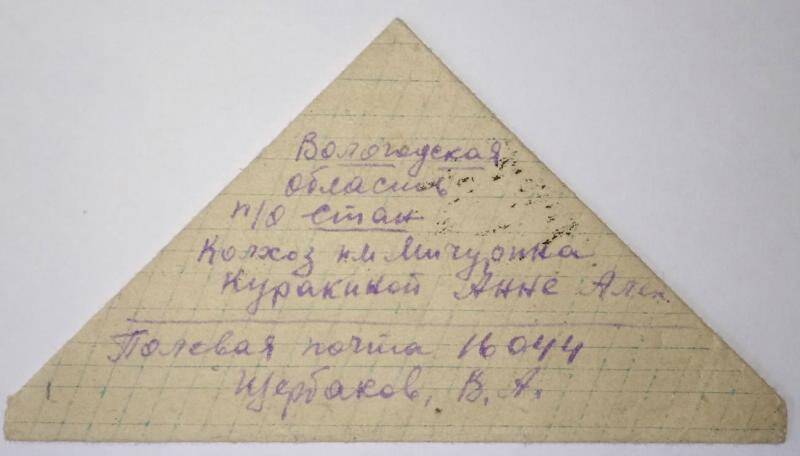 Вологодская
область
п/о стан
Колхоз им Мичурина
Куракиной Анне Алек.
Полевая почта 16044
Щербаков, В. А.